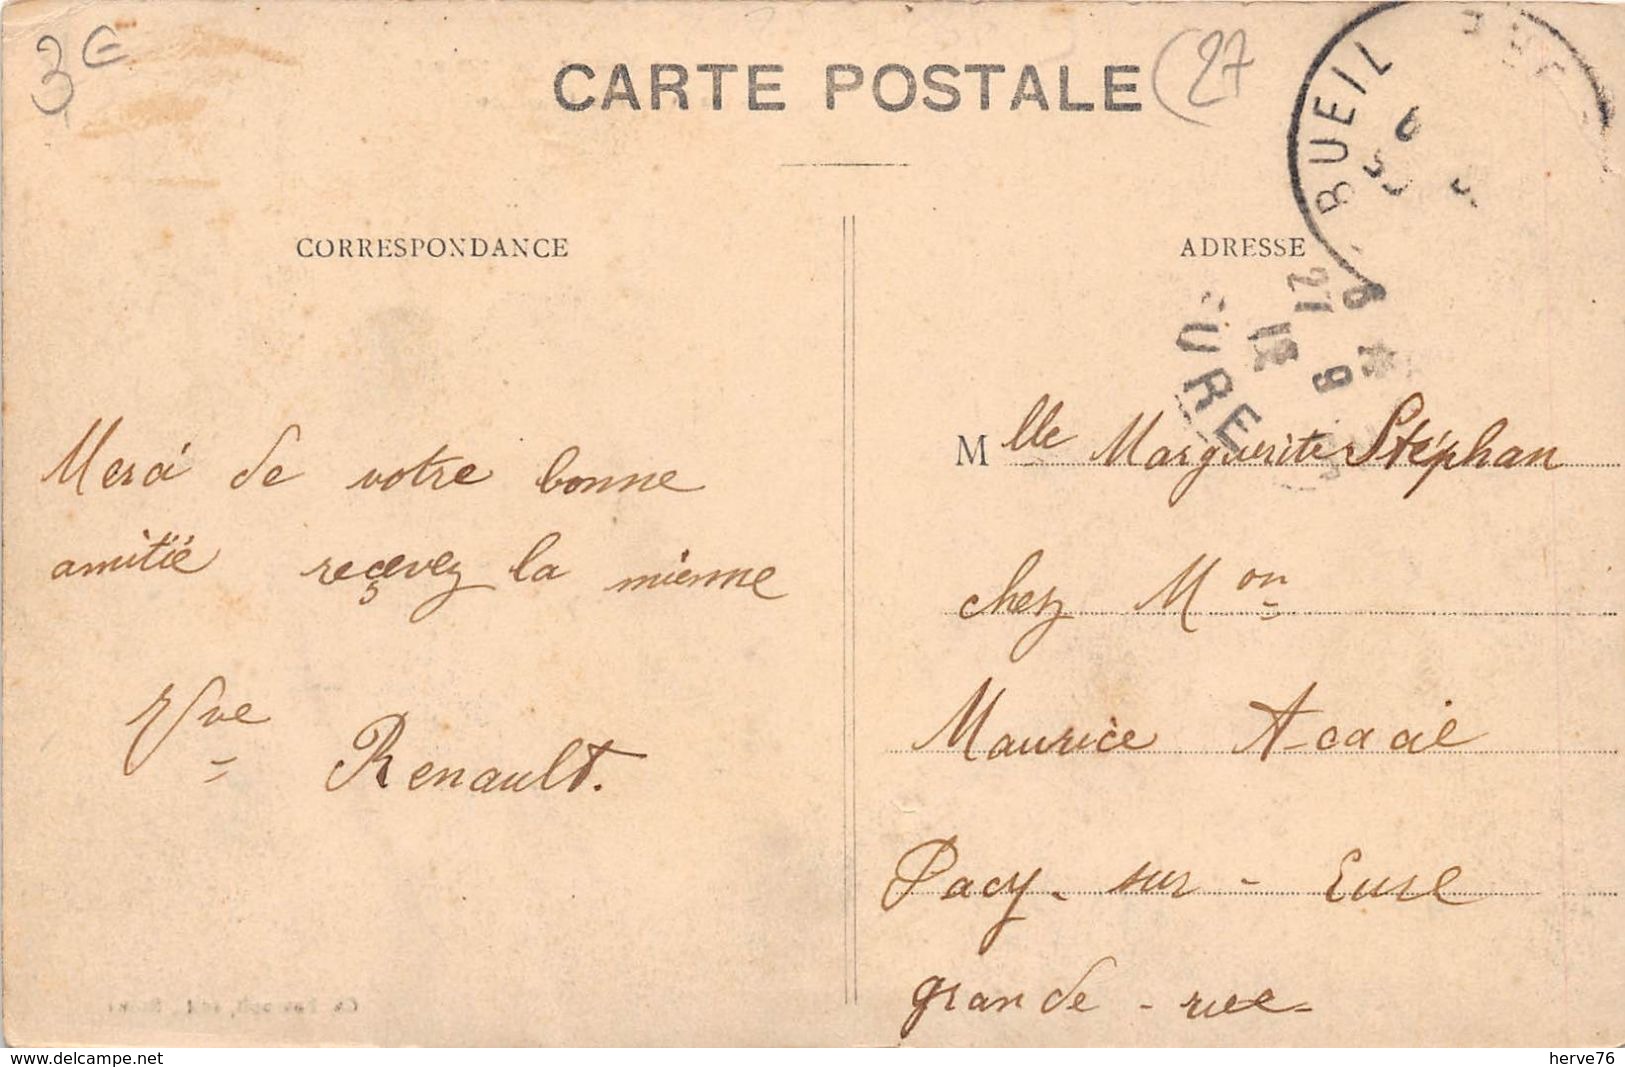 3€
CARTE POSTALE
(27
BUEIL
CORRESPONDANCE
ADRESSE
URE
Merci de votre bonne
amitié reçevez la mienne
Vve
Renault.
Mlle Marguerite Stéphan
chez Mon
Maurice Acacie
Pacy-sur-Eure
grande-rue
www.delcampe.net
herve76